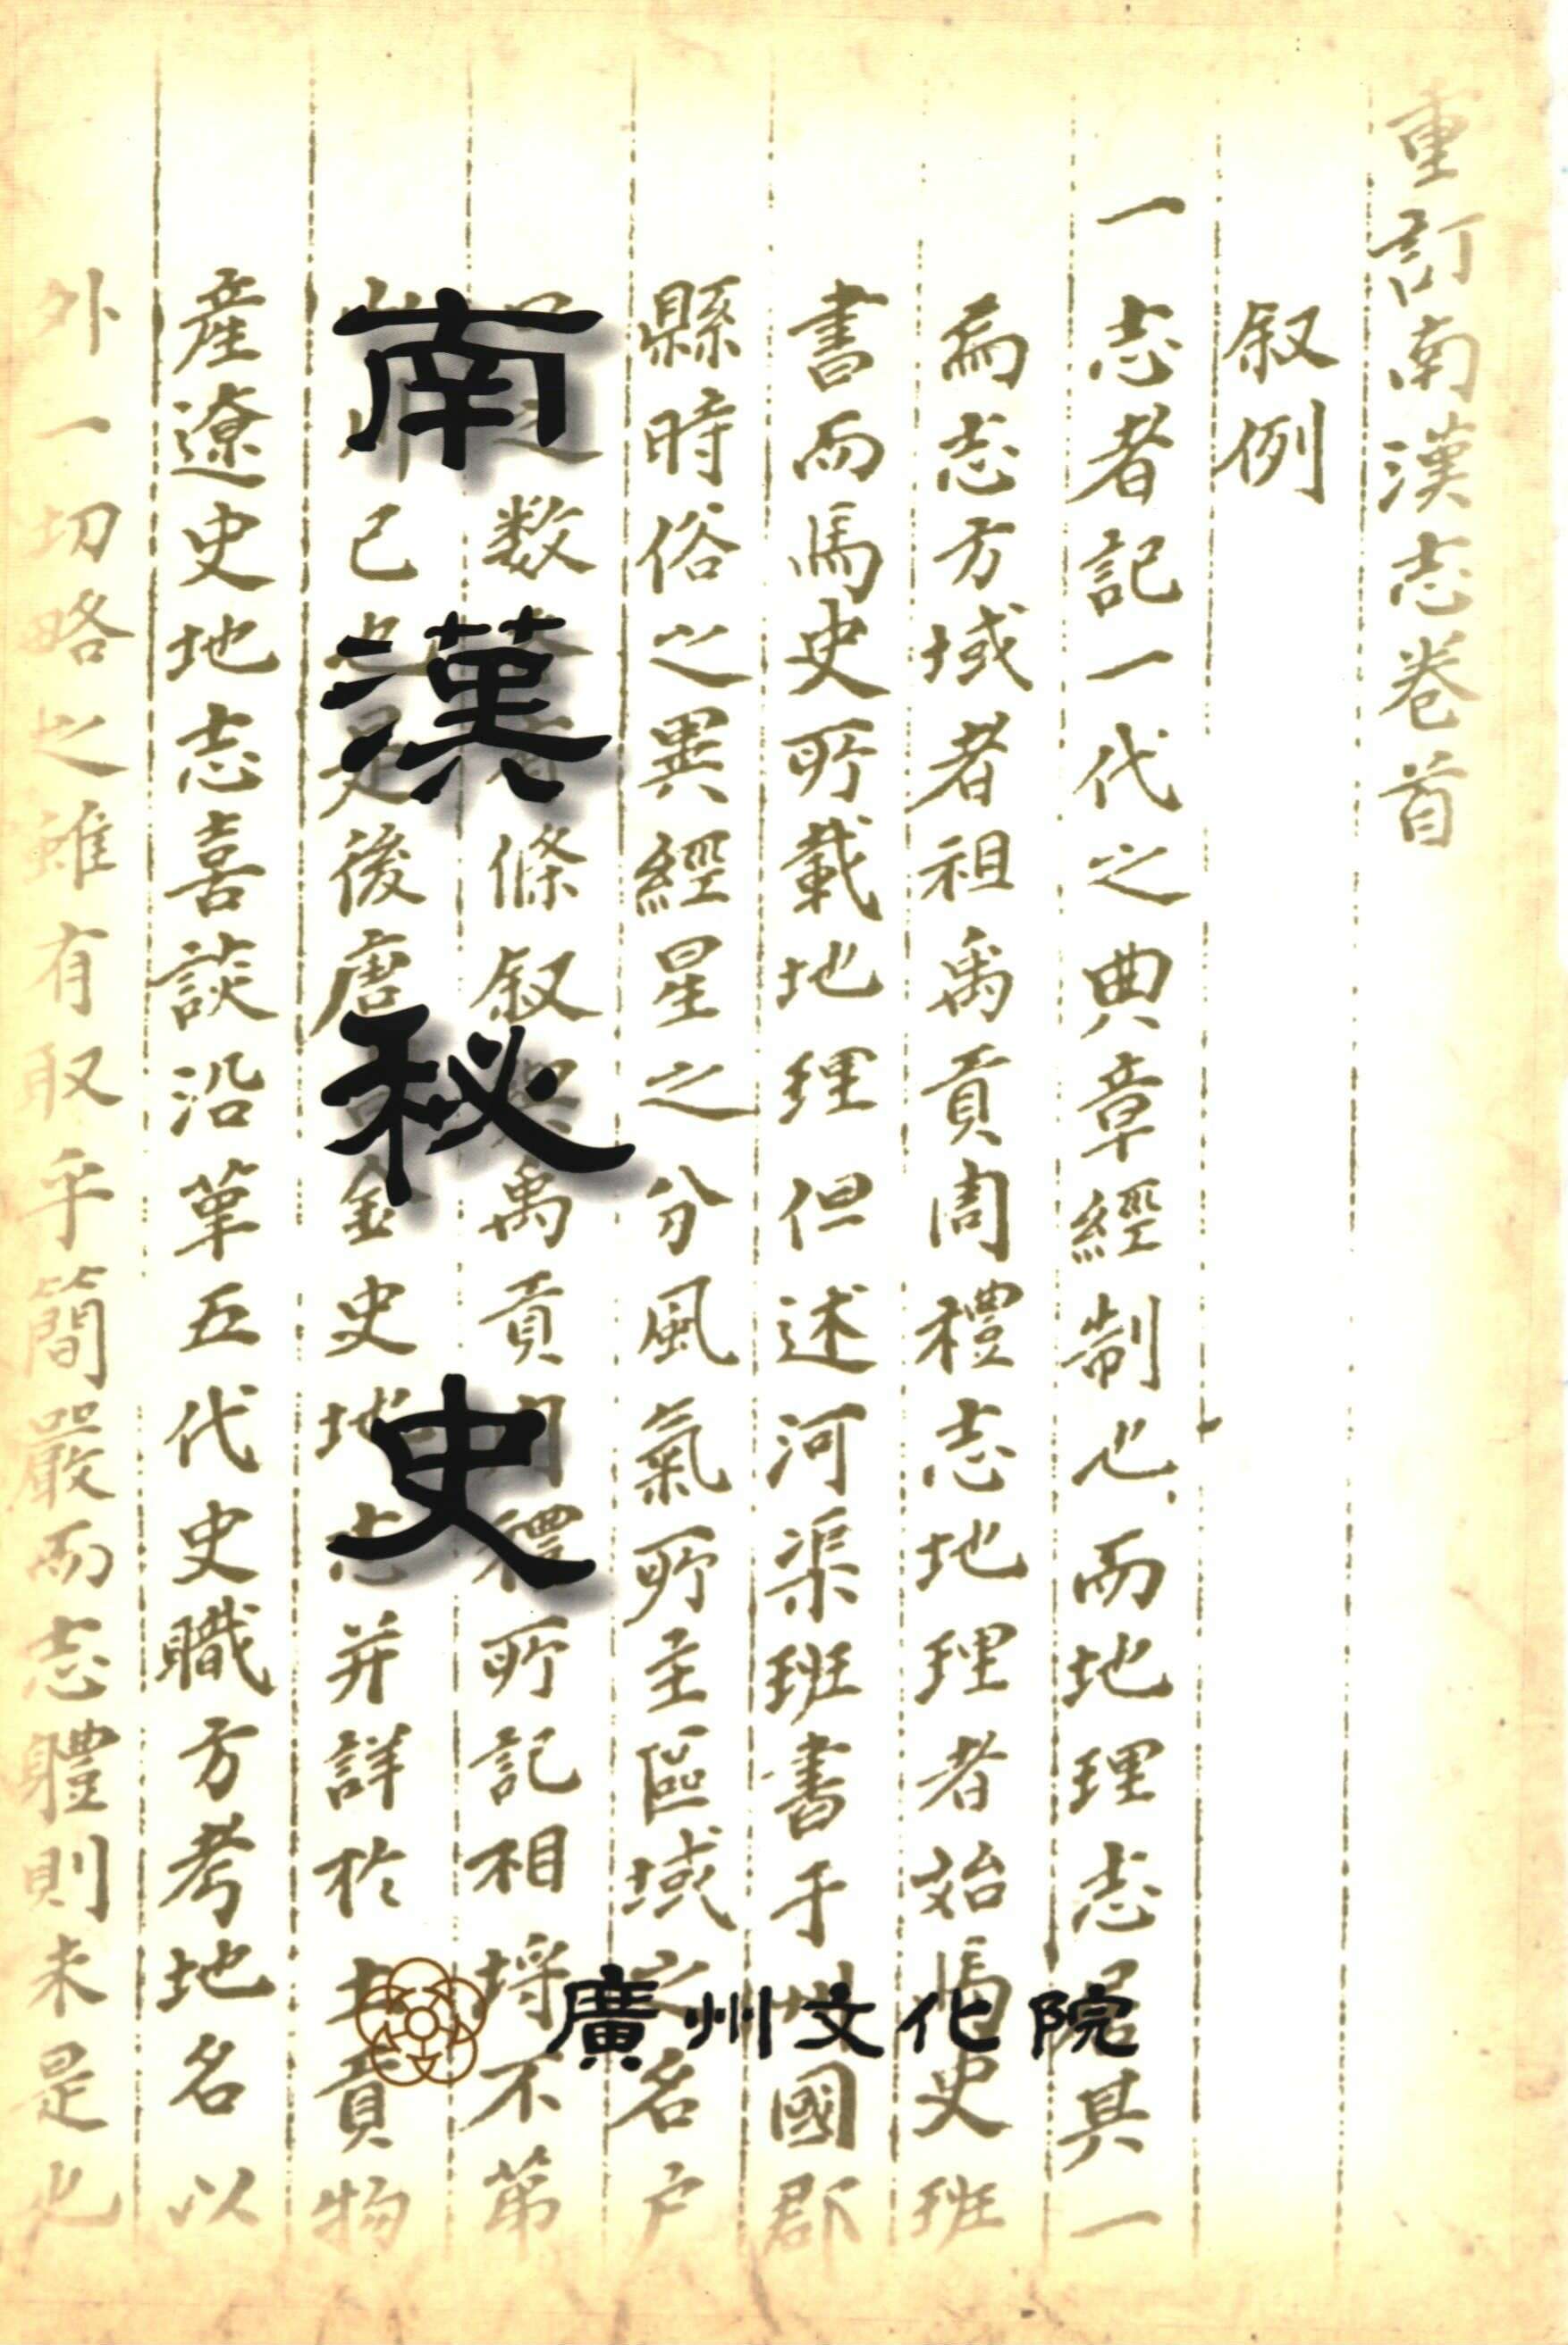 重訂南漢志卷首
叙例
一志者記一代之典章經制也而地理志居其一
為志方域者祖禹貢周禮志地理者始馬史班
書而馬史所載地理但述河渠班書于州國郡
縣時俗之異經星之分風氣所主區域之名户
数條叙禹貢禮所記相埒不第
已後唐金史地志并詳於土貢物
産遼史地志喜談沿革五代史職方考地名以
外一切略之雖有取乎簡嚴而志體則未是也
南漢秘史
廣州文化院